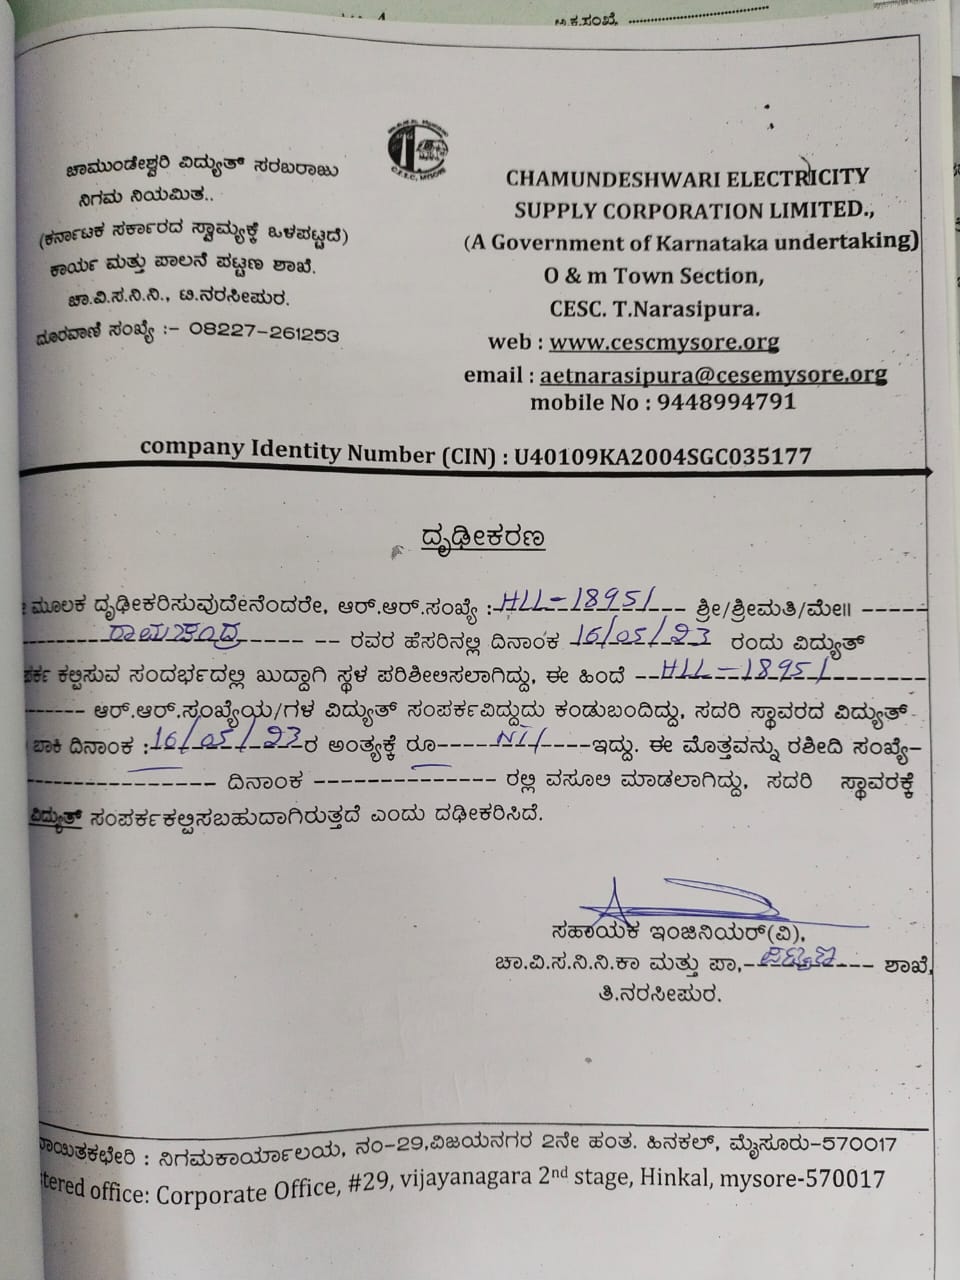 ಅ.ಕ.ಸಂಖೆ,
ಚಾಮುಂಡೇಶ್ವರಿ ವಿದ್ಯುತ್ ಸರಬರಾಜು
ನಿಗಮ ನಿಯಮಿತ..
(ಕರ್ನಾಟಕ ಸರ್ಕಾರದ ಸ್ವಾಮ್ಯಕ್ಕೆ ಒಳಪಟ್ಟದೆ)
ಕಾರ್ಯ ಮತ್ತು ಪಾಲನೆ ಪಟ್ಟಣ ಶಾಖೆ.
ಚಾ.ವಿ.ಸ.ನಿ.ನಿ., ಟಿ.ನರಸೀಪುರ.
ದೂರವಾಣಿ ಸಂಖ್ಯೆ :- 08227-261253
CHAMUNDESHWARI ELECTRICITY
SUPPLY CORPORATION LIMITED.,
(A Government of Karnataka undertaking)
O & m Town Section,
CESC. T.Narasipura.
web : www.cescmysore.org
email : aetnarasipura@cesemysore.org
mobile No : 9448994791
company Identity Number (CIN) : U40109KA2004SGC035177
ದೃಢೀಕರಣ
ಮೂಲಕ ದೃಢೀಕರಿಸುವುದೇನೆಂದರೇ, ಆರ್.ಆರ್.ಸಂಖ್ಯೆ :-HLL-18951--- ಶ್ರೀ/ಶ್ರೀಮತಿ/ಮೇ॥ -----
--------ರಾಮಚಂದ್ರ------ -- ರವರ ಹೆಸರಿನಲ್ಲಿ ದಿನಾಂಕ -16/05/23 ರಂದು ವಿದ್ಯುತ್
ಕಲ್ಪಿಸುವ ಸಂದರ್ಭದಲ್ಲಿ ಖುದ್ದಾಗಿ ಸ್ಥಳ ಪರಿಶೀಲಿಸಲಾಗಿದ್ದು, ಈ ಹಿಂದೆ --HLL-18951--------
------ ಆರ್.ಆರ್.ಸಂಖ್ಯೆಯ/ಗಳ ವಿದ್ಯುತ್ ಸಂಪರ್ಕವಿದ್ದುದು ಕಂಡುಬಂದಿದ್ದು, ಸದರಿ ಸ್ಥಾವರದ ವಿದ್ಯುತ್
ಬಾಕಿ ದಿನಾಂಕ :16/05/23ರ ಅಂತ್ಯಕ್ಕೆ ರೂ-----Nil-----ಇದ್ದು. ಈ ಮೊತ್ತವನ್ನು ರಶೀದಿ ಸಂಖ್ಯೆ-
---------------- ದಿನಾಂಕ --------------- ರಲ್ಲಿ ವಸೂಲಿ ಮಾಡಲಾಗಿದ್ದು, ಸದರಿ ಸ್ಥಾವರಕ್ಕೆ
ವಿದ್ಯುತ್ ಸಂಪರ್ಕಕಲ್ಪಿಸಬಹುದಾಗಿರುತ್ತದೆ ಎಂದು ದಢೀಕರಿಸಿದೆ.
ಸಹಾಯಕ ಇಂಜಿನಿಯರ್(ವಿ),
ಚಾ.ವಿ.ಸ.ನಿ.ನಿ.ಕಾ ಮತ್ತು ಪಾ,-ಪಟ್ಟಣ--- ಶಾಖೆ,
ತಿ.ನರಸೀಪುರ.
ನಿಗಮಕಾರ್ಯಾಲಯ, ನಂ-29,ವಿಜಯನಗರ 2ನೇ ಹಂತ. ಹಿನಕಲ್, ಮೈಸೂರು-570017
tered office: Corporate Office, #29, vijayanagara 2nd stage, Hinkal, mysore-570017